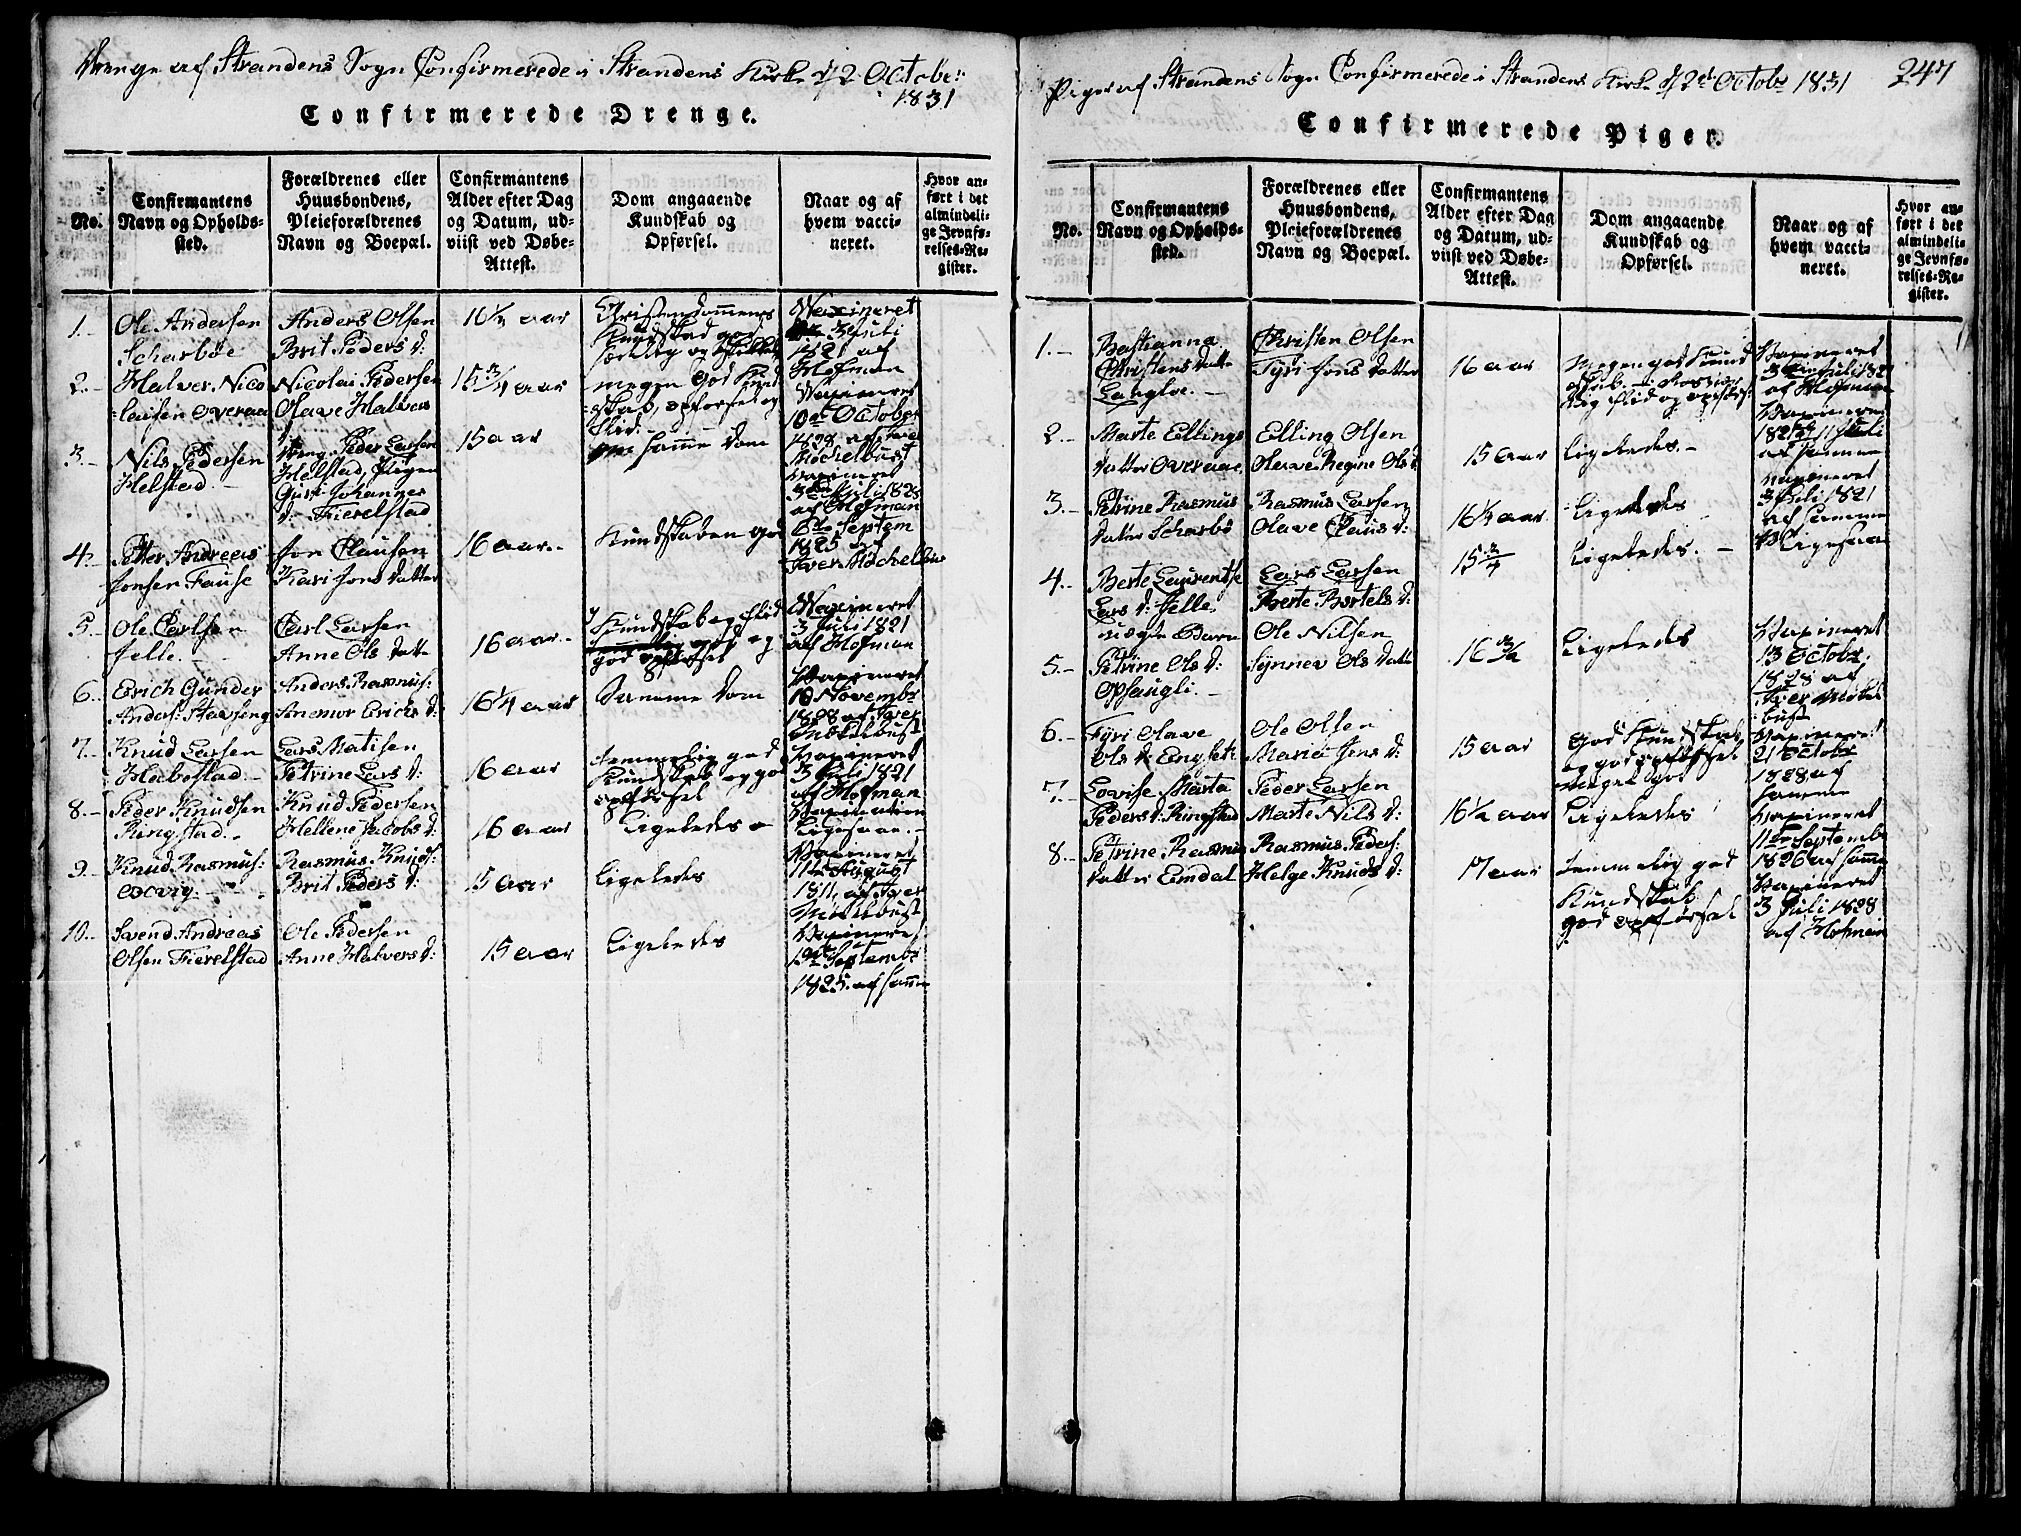 Drenge af Strandens Sogn Confirmerede i Strandens Kirke d 2 October
1831
Confirmerede Drenge.
No.
Confirmantens
Navn og Opholds-
sted.
Forældrenes eller
Huusbondens,
Pleieforældrenes
Navn og Boepæl.
Confirmantens
Alder efter Dag
og Datum, ud-
viist ved Døbe-
Attest.
Dom angaaende
Kundskab og
Opførsel.
Naar og af
hvem vacci-
neret.
Hvor an-
ført i det
almindeli-
ge Jevnfø-
relses-Re-
gister.
1.
Ole Andersen
Scharbøe
Anders Olsen
Brit Peders d:
16¼ aar
Christendommens
Kundskab god
Vaxineret
3 Juli
1821 af
Hofman
2.
Halver Nico
laisen Overaa
Nicolai Pedersen
Olave Halvers
15¾ aar
megen god Kund
skab, opførsel og
flid
Vaxineret
10de October
1828 af Iver
Mochelbust
3.
Nils Pedersen
Helstad
Peder Larsen
Helstad, Pigen
Guri Johannes
d: Fierelstad
15 aar
samme Dom
Vaxineret
3de Juli 1825
af Hofman
4.
Petter Andreas
Jonsen Fause
Jon Clausen
Kari Jons datter
16 aar
Kundskaben god
6te Septem
1825 af
Iver Mochelbust
5.
Ole Carlsen
Jelle.
Carl Larsen
Anne Ols datte
16 aar
Kundskab og flid
god og
god opførsel
Vaxineret
3 Juli 1821
af Hofman
6.
Erich Gunder
Anders: Stavseng
Anders Rasmus:
Anemor Erichs d:
16¼ aar
Samme dom
Vaxineret
18 Novembr
1828 af Iver
Mochelbust
7.
Knud Larsen
Habostad
Lars Matisen
Petrine Lars d:
16 aar
temmelig god
Kundskab og god
opførsel
Vaxineret
3 Juli 1821
af Hofman
8.
Peder Knudsen
Ringstad.
Knud Pedersen
Hellene Jacobs d:
16 aar
Ligeledes
Vaxination
Ligesaa.
9.
Knud Rasmus:
Rasmus Knuds:
Brit Peders d:
15 aar
Ligeledes
Vaxineret
11te August
af Iver
Mochelbust
10.
Svend Andreas
Olsen Fierelstad
Ole Pedersen
Anne Halvers d:
15 aar
Ligeledes
Vaxineret
Septembr
1825 af samme
Piger af Strandens Sogn Confirmerede i Strandens Kirke d 2d Octobr 1831
247
Confirmerede Piger.
No.
Confirmantens
Navn og Opholds-
sted.
Forældrenes eller
Huusbondens,
Pleieforældrenes
Navn og Boepæl.
Confirmantens
Alder efter Dag
og Datum, ud-
viist ved Døbe-
Attest.
Dom angaaende
Kundskab og
Opførsel.
Naar og af
hvem vacci-
neret.
Hvor an-
ført i det
almindeli-
ge Jevnfø-
relses-Re-
gister.
1.
Bastianna
Christens datter
Langloe.
Christen Olsen
Tyri Jons datter
16 aar
Megen god Kund
skab
flid og opførs:
Vaxineret
3 Juli 1821
af Hofman
2.
Marte Ellings
datter Overaae.
Elling Olsen
Olave Regine Ols d:
15 aar
Ligeledes.
Vaxineret
11 Juli
af samme
3.
Petrine Rasmus
datter Scharbø
Rasmus Larsen
Olave Claus d:
16¼ aar
Ligeledes
Vaxineret
3 Juli 1821
af samme
4.
Berte Laurentse
Lars d: Jelle.
Lars Larsen
Berte Bertels d:
15¾
Ligeledes.
Ligesaa
5.
uægte Barn
Petrine Ols d:
Opsaugli.
Ole Nilsen
Synnev Ols datte
16¾
Ligeledes
Vaxineret
13 Octobr
1828 af
Iver Mochel
bust
6.
Tyri Olave
Ols d: Engset:
Ole Olsen
Marie Jens d:
15 aar
god Kundskab
og god opførsel
meget god
Vaxineret
21 Octobr
1828 af
samme
7.
Lovise Marta
Peders d: Ringstad
Peder Larsen
Marte Nils d:
16½ aar
Ligeledes
Vaxineret
11te Septembr
1826 af samme
8.
Petrine Rasmus
datter Eindal
Rasmus Peders:
Helge Knuds d:
17 aar
temmelig god
Kundskab
god opførsel
Vaxineret
3 Juli 1828
af Hofman